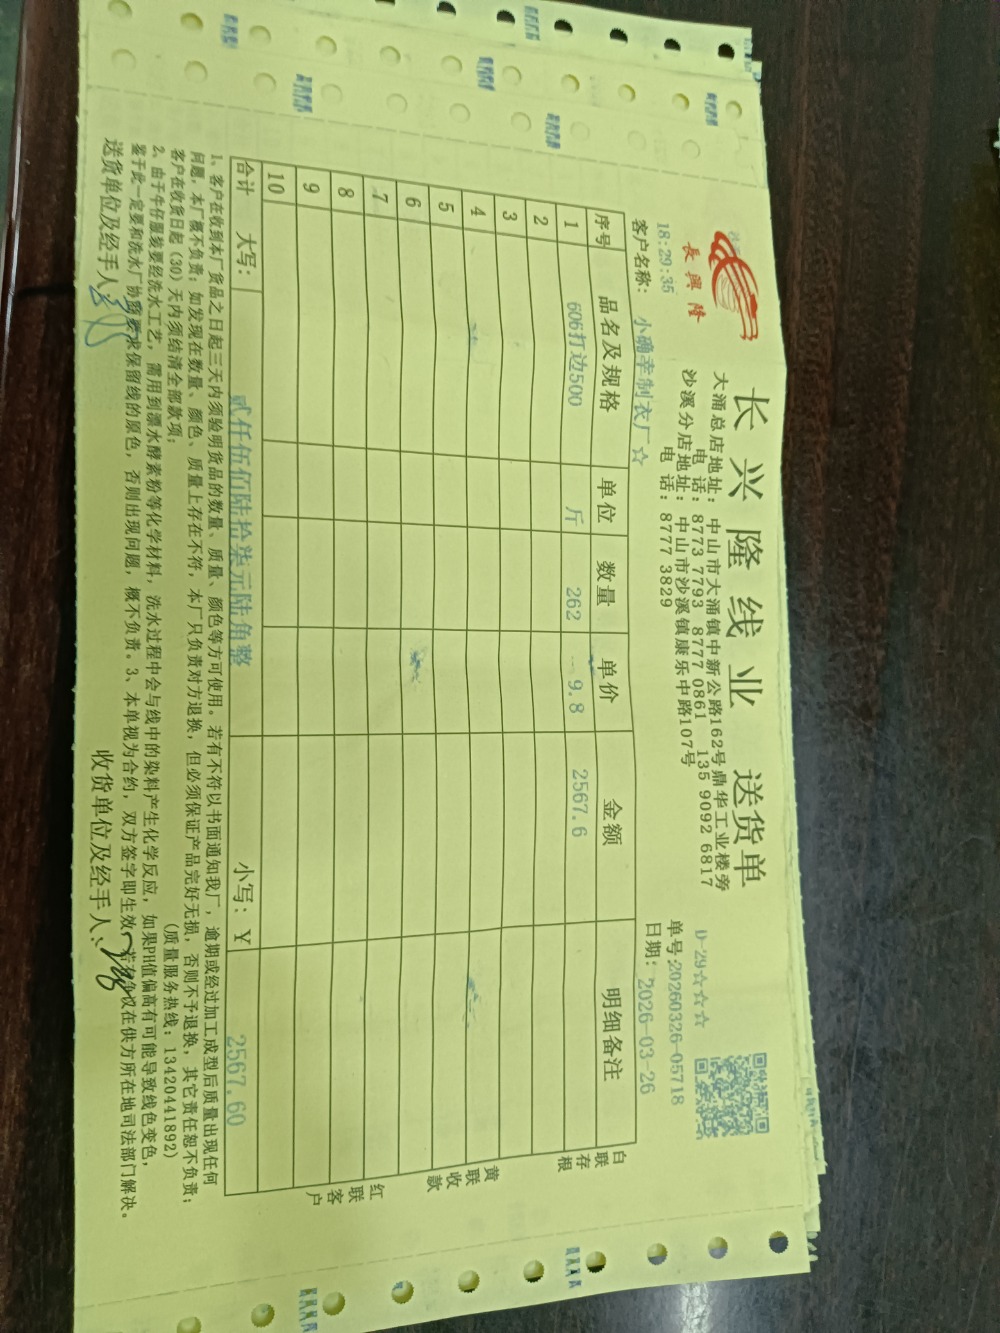 長興隆
长兴隆线业 送货单
大涌总店地址：中山市大涌镇中新公路162号鼎华工业楼旁
电 话：8773 7793 8777 0861 135 9092 6817
沙溪分店地址：中山市沙溪镇康乐中路107号
电 话：8777 3829
D-29☆☆☆
单号:20260326-05718
18:29:35
日期：2026-03-26
客户名称：小确幸制衣厂☆
序号 品名及规格 单位 数量 单价 金额 明细备注
1 606打边500 斤 262 9.8 2567.6
2
3
4
5
6
7
8
9
10
合计 大写：贰仟伍佰陆拾柒元陆角整 小写：￥ 2567.60
白联存根
黄联收款
红联客户
1、客户在收到本厂货品之日起三天内须验明货品的数量、质量、颜色等方可使用。若有不符以书面通知我厂，逾期或经过加工成型后质量出现任何
问题，本厂概不负责；如发现在数量、颜色、质量上存在不符，本厂只负责对方退换，但必须保证产品完好无损，否则不予退换，其它责任恕不负责；
客户在收货日起（30）天内须结清全部款项； （质量服务热线：13420441892）
2、由于牛仔服装要经洗水工艺，需用到漂水酵素粉等化学材料，洗水过程中会与线中的染料产生化学反应，如果PH值偏高有可能导致线色变色，
鉴于此一定要和洗水厂协商要求保留线的原色，否则出现问题，概不负责。3、本单视为合约，双方签字即生效，若有争议在供方所在地司法部门解决。
送货单位及经手人：
收货单位及经手人：